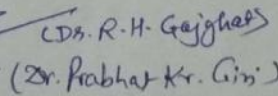 (Dr. R.H. Gajghat)
(Dr. Prabhat Kr. Giri)